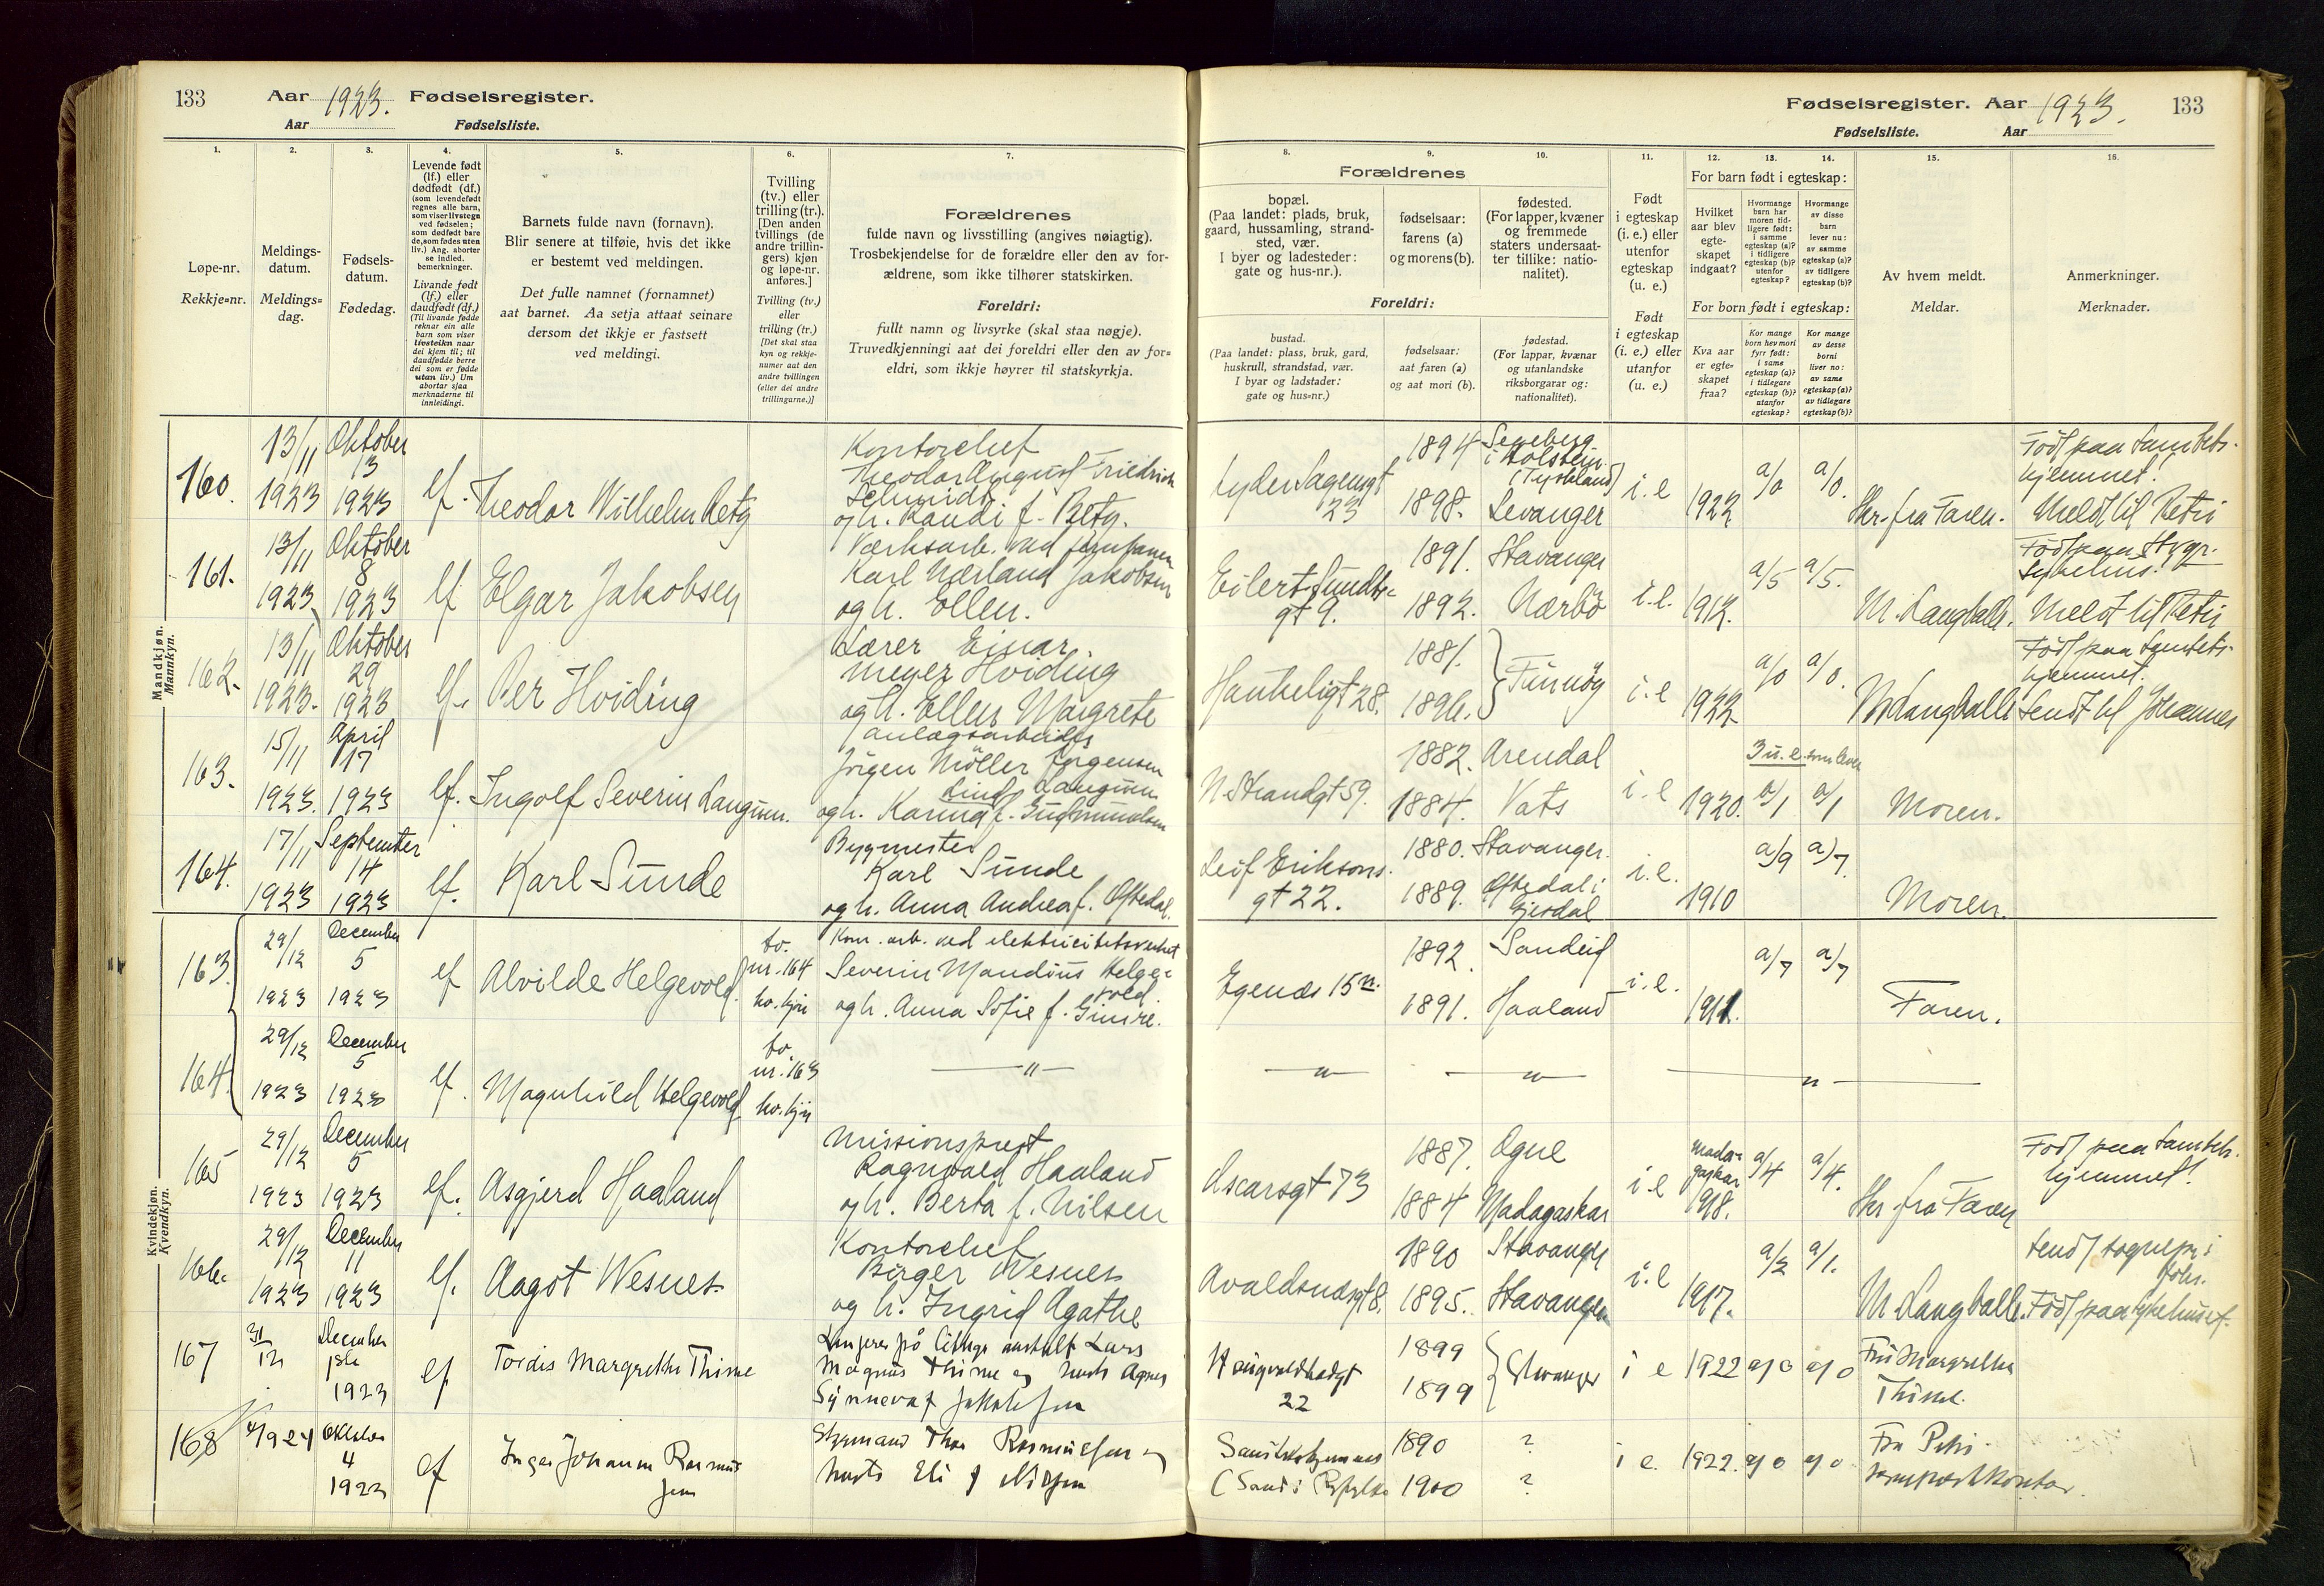 133
Aar 1923. Fødselsregister.
Aar Fødselsliste.
Fødselsregister. Aar 1923.
Fødselsliste. Aar
133
1.
2.
3.
4.
5.
6.
7.
Løpe-nr.
Rekkje-nr.
Meldings-
datum.
Meldings-
dag.
Fødsels-
datum.
Fødedag.
Levende født
(lf.) eller
dødfødt (df.)
(som levendefødt
regnes alle barn,
som viser livstegn
ved fødselen;
som dødfødt bare
de, som fødes uten
liv.) Ang. aborter
se indled.
bemerkninger.
Livande født
(lf.) eller
daudfødt (df.)
(Til livande fødde
reknar ein alle
barn som viser
livsteikn naar
dei kjem til; til
daudfødde berre
dei som er fødde
utan liv.) Um
abortar sjaa
merknaderne til
innleidingi.
Barnets fulde navn (fornavn).
Blir senere at tilføie, hvis det ikke
er bestemt ved meldingen.
Det fulle namnet (fornamnet)
aat barnet. Aa setja attaat seinare
dersom det ikkje er fastsett
ved meldingi.
Tvilling
(tv.) eller
trilling (tr.).
[Den anden
tvillings (de
andre trillin-
gers) kjøn
og løpe-nr.
anføres.]
Tvilling (tv.)
eller
trilling (tr.)
[Det skal staa
kyn og rekkje-
numer aat den
andre tvillingen
(eller dei andre
trillingarne.)]
Forældrenes
fulde navn og livsstilling (angives nøiagtig).
Trosbekjendelse for de forældre eller den av for-
ældrene, som ikke tilhører statskirken.
Foreldri:
fullt namn og livsyrke (skal staa nøgje).
Truvedkjenningi aat dei foreldri eller den av for-
eldri, som ikkje høyrer til statskyrkja.
8.
9.
10.
11.
12.
13.
14.
15.
16.
Forældrenes
bopæl.
(Paa landet: plads, bruk,
gaard, hussamling, strand-
sted, vær.
I byer og ladesteder:
gate og hus-nr.).
fødselsaar:
farens (a)
og morens (b).
fødested.
(For lapper, kvæner
og fremmede
staters undersaat-
ter tillike: natio-
nalitet).
Foreldri:
bustad.
(Paa landet: plass, bruk, gard,
huskrull, strandstad, vær.
I byar og ladstader:
gate og hus-nr.)
fødselsaar:
aat faren (a)
og aat mori (b).
fødestad.
(For lappar, kvænar
og utanlandske
riksborgarar og:
nationalitet).
Født
i egteskap
(i. e.) eller
utenfor
egteskap
(u. e.)
Født
i egteskap
(i. e.) eller
utanfor
(u. e.)
For barn født i egteskap:
Hvilket
aar blev
egte-
skapet
indgaat?
Hvormange
barn har
moren tid-
ligere født:
i samme
egteskap (a)?
i tidligere
egteskap (b)?
utenfor
egteskap?
Hvormange
av disse
barn
lever nu:
av samme
egteskap (a)?
av tidligere
egteskap (b)?
For born født i egteskap:
Kva aar
er egte-
skapet
fraa?
Kor mange
born hev mori
fyrr født:
i same
egteskap (a)?
i tidlegare
egteskap (b)?
utanfor
egteskap?
Kor mange
av desse
borni
liver no:
av same
egteskap (a)?
av tidlegare
egteskap (b)?
Av hvem meldt.
Meldar.
Anmerkninger.
Merknader.
Mandkjøn.
Mannkyn.
160. 13/11 1923 Oktober 13 1923 lf. Theodor Wilhelm Retz
Kontorchef
Theodor August Friedrich
Schmidt
og h. Randi f. Retz.
Lyder Sagensgt 23
1894 Segeberg i Holstein (Tyskland)
1898. Levanger
i. e 1922 a/0 a/0. Skr. fra Faren.
Født paa Sanitets-
hjemmet.
Meldt til Petri
161. 13/11 1923 Oktober 8 1923 lf Elgar Jakobsen
Karl Nærland Jakobsen
og h. Ellen.
Eilert Sundts-
gt 9.
1891. Stavanger
1892. Nærbø
i. e. 1912. a/5 a/5. M. Langballe.
Født paa Stvgr.
sykehus.
Meldt til Petri
162. 13/11 1923. Oktober 29 1923 lf. Per Hviding
Lærer Einar
Meyer Hviding
og h. Ellen Margrete
Haukeligt 28.
1881.
1896.
Finnøy
i. e 1922 a/0 a/0. M Langballe
Født paa Sanitets-
hjemmet.
Sendt til Johannes
163. 15/11 1923. April 17 1923 lf. Ingolf Severin Langum.
Anlægsarbeider
Jørgen Møller Jørgensen
Lind Langum
og h. Karina f. Gudmundsen
N. Strandgt 59.
1882. Arendal
1884. Vats
i. e 1920. 3 u. e. som lever
a/1 a/1 Moren.
164. 17/11 1923 September 14 1923 lf. Karl Sunde
Bygmester
Karl Sunde
og h. Anna Andrea f. Oftedal.
Leif Eriksons.
gt 22.
1880. Stavanger.
1889. Oftedal i
Gjesdal
i. e. 1910 a/9 a/7. Moren.
Kvindekjøn.
Kvendkyn.
163. 29/12 1923 December 5 1923 lf Alvilde Helgevold.
tv.
nr. 164
kv. kjn
Kom. arb. ved elektricitetsverket
Severin Mandius Helge-
vold.
og h. Anna Sofie f. Gimre.
Egenes 15 n.
1892. Sandeid
1891. Haaland
i. e. 1911. a/7 a/7 Faren.
164. 29/12 1923 December 5 1923 lf. Magnhild Helgevold
tv.
nr. 163
kv. kjn
— " — — " — — " — — " —
165 29/12 1923 December 5 1923 lf. Asgjerd Haaland
Missionsprest
Ragnvald Haaland
og h. Berta f. Nilsen
Oscarsgt 73
1887. Ogne
1884 Madagaskar
i. e Mada-
gaskar
1918. a/4 a/4. Skr. fra Faren
Født paa Sanitets-
hjemmet.
166. 29/12 1923 December 11 1923 lf. Aagot Wesnes.
Kontorchef
Birger Wesnes
og h. Ingrid Agathe
Avaldsnesgt 8.
1890 Stavanger
1895. Stavanger
i. e 1917. a/2 a/1. M. Langballe.
Sendt sognepr. i
Joh.
Født paa sykehuset.
167 31/12 December 1923 lf Tordis Margrethe Thime
Lars
Magnus Thime og hust. Agnes
Synneva f Jakobsen
22
1899
1899
Stavanger
i e 1922 a/0 a/0
Fru Margrethe
Thime.
168 1924 Oktober 4 1923 lf Inger Johanne Rasmus
sen
Styrmand Thor Rasmussen og
hust. Eli f Nilsen
Sanitetshjemmet
(Sand i Ryfylke
1890 ?
1900 ?
i e. 1922. a/0 a/0
Fra Petri
sogneprestkontor.